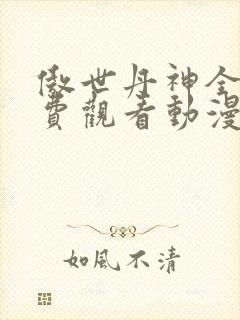 傲世丹神全
費觀看動漫
如風不清